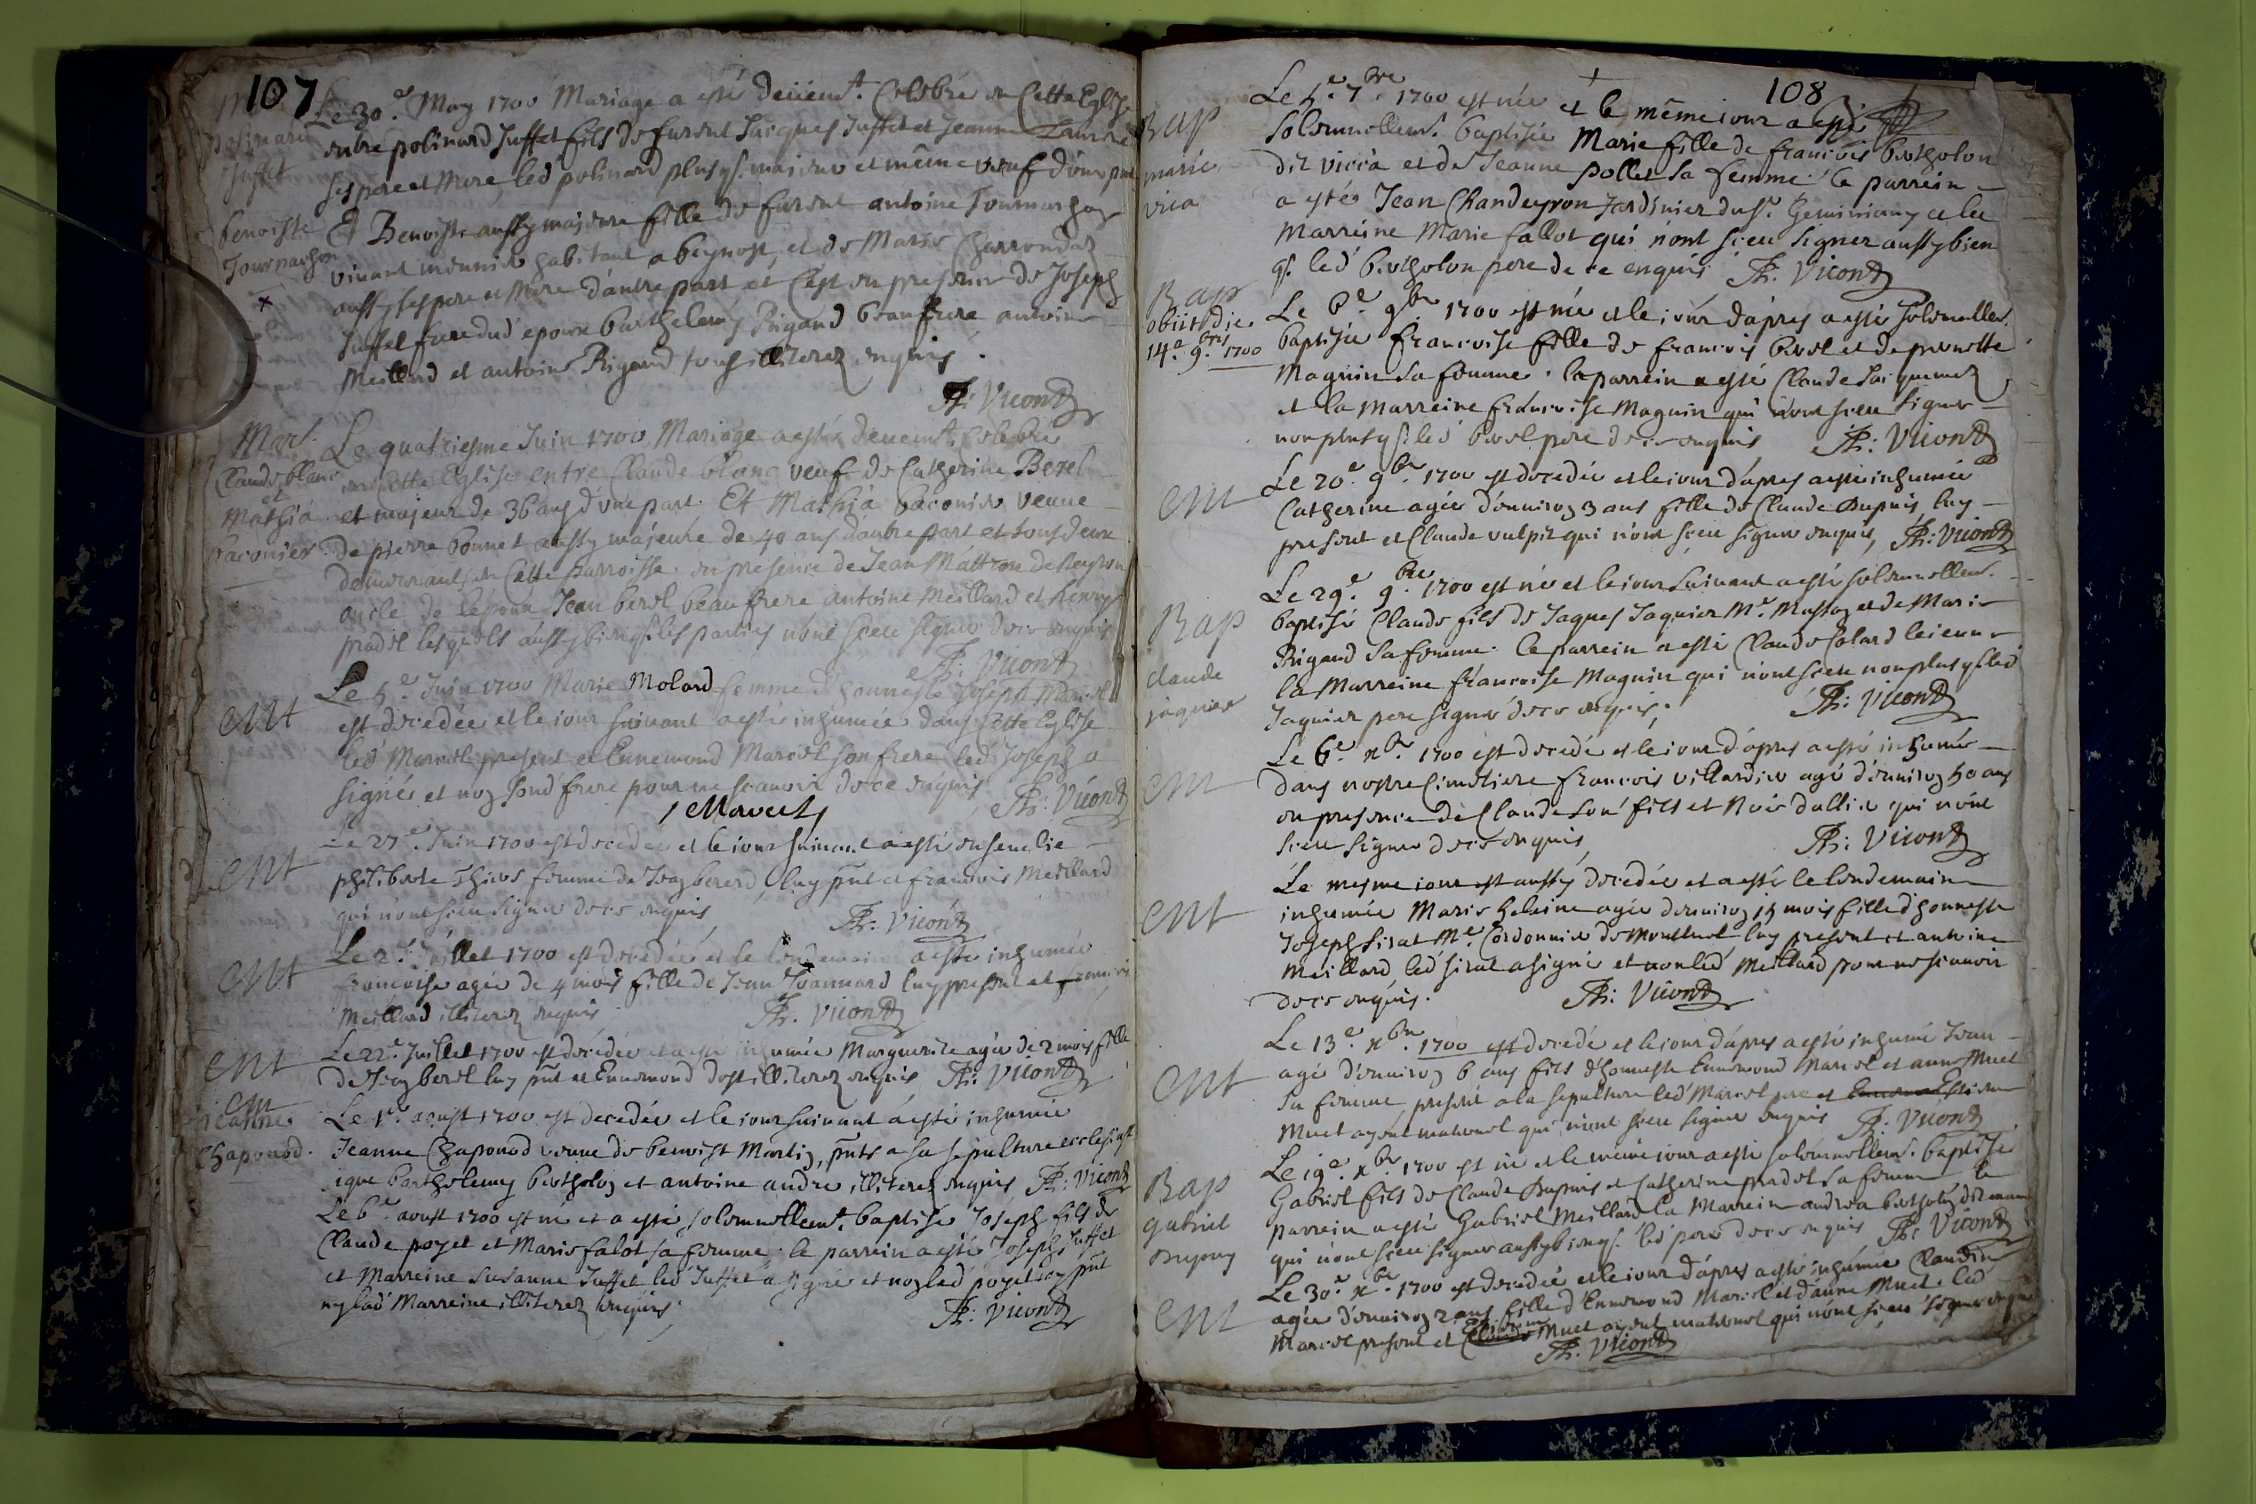 107
Le 30e May 1700 Mariage a esté deüemt Celebré en Cette Eglise
entre polinard Juffet fils de furent Jacques Juffet et Jeanne
ses pere et Mere, led polinard plus qs majeur et même veuf d'une part
Et Benoiste aussy majeure fille de furent antoine Tournachon
vivant meunier habitant a beynost, et de Marie Charrondas
aussy ses pere et Mere d'autre part et C'est en presence de Joseph
Juffet frere dud epoux barthelemy Rigaud beaufrere antoine
Meillard et antoine Rigaud tous illiterez enquis.
polinard
Juffet
benoiste
Tournachon
x
Th: Vicond
Mari.
Claude blanc
et
Mathia
paconier
Le quatriesme Juin 1700 Mariage a esté deuemt Celebré
en Cette Eglise entre Claude blanc veuf de Catherine Berel
et majeur de 36 ans d'une part. Et Mathia paconier veuve
de pierre bonnet aussy majeure de 40 ans d'autre part et tous deux
demeurants en Cette parroisse. en presence de Jean Mattron de Neyron
oncle de l'epoux Jean berel beau frere antoine Meillard et henry
pradel lesquels aussy bien qs les parties n'ont sceu signer de ce enquis
Th: Vicond
ent
Le 5e Juin 1700 Marie Molard femme d'honneste Joseph Marcel
est decedée et le jour suivant a esté inhumée dans Cette Eglise
led Marcel present et Ennemond Marcel son frere led Joseph a
signé et non sond frere pour ne scauoir de ce enquis
Marcel
Th: Vicond
ent
Le 27e Juin 1700 est decedée et le jour suivant a esté enseuelie
philiberte Thieve femme de Jean bererd, luy pnt et francois Meillard
qui n'ont sceu signer de ce enquis
Th: Vicond
ent
Le 2e Juillet 1700 est decedée et le lendemain a esté inhumée
francoise agée de 4 mois fille de Jean Joannard luy present et francois
Meillard illiterez enquis
Th: Vicond
ent
Le 22e Juillet 1700 est decedée et a esté inhumée Marguerite agée de 2 mois fille
de Jean berel luy pnt et Ennemond dost illiterez enquis
Th: Vicond
ent
Jeanne
Chaponod.
Le 1er aoust 1700 est decedée et le jour suivant a esté inhumée
Jeanne Chaponod veuve de benoist Martin, pnts a sa sepulture ecclesiast
ique barthelemy bertholon et antoine andre illiterez enquis
Th: Vicond
Le 6e aoust 1700 est né et a esté solemnellemt. baptisé Joseph fils de
Claude poyet et Marie falot sa femme. le parrein a esté Joseph Juffet
et Marreine Susanne Juffet led Juffet a signé et non led poyet icy pnt
ny lad Marreine illiterez enquis
Th: Vicond
108
Bap
marie
vicia
Le 5e 7bre 1700 est née et le même jour a esté
solemnellemt. baptisée Marie fille de francois bertholon
dit viccia et de Jeanne pollet sa femme. le parrein
a esté Jean Chandeyron Jardinier du sr. Geminiany et la
Marreine Marie fallot qui n'ont sceu signer aussy bien
qs. led bertholon pere de ce enquis
Th: Vicond
Bap
obiit die
14a 9bris 1700
Le 6e 9bre 1700 est née et le jour d'apres a esté solemnellet.
baptisée francoise fille de francois berel et de pernette
Magnin sa femme. le parrein a esté Claude Jacquemet
et la Marreine francoise Magnin qui n'ont sceu signer
non plus qs led berel pere de ce enquis
Th: Vicond
ent
Le 20e 9bre 1700 est decedée et le jour d'apres a esté inhumée
Catherine agée d'environ 3 ans fille de Claude Dupuis, luy
present et Claude vulpit qui n'ont sceu signer enquis,
Th: Vicond
Bap
claude
jaquier
Le 29e 9bre 1700 est né et le jour suivant a esté solemnellemt.
baptisé Claude fils de Jaques Jaquier Me. Masson et de Marie
Rigaud sa femme. le parrein a esté Claude Colard le jeune
la Marreine francoise Magnin qui n'ont sceu non plus qs led
Jaquier pere signer de ce enquis,
Th: Vicond
ent
Le 6e xbre 1700 est decedé et le jour d'apres a esté inhumé
dans nostre Cimetiere francois villardier agé d'environ 50 ans
en presence de Claude son fils et Noé dallier qui n'ont
sceu signer de ce enquis,
Th: Vicond
ent
Le mesme jour est aussy decedée et a esté le lendemain
inhumée Marie helaine agée d'environ 15 mois fille d'honneste
Joseph sirat Me. Cordonnier de Montluel luy present et antoine
Meillard led sirat a signé et non led Meillard pour ne scauoir
de ce enquis.
Th: Vicond
ent
Le 13e xbre 1700 est decedé et le jour d'apres a esté inhumé Jean
agé d'environ 6 ans fils d'honneste Ennemond Marcel et anne Muet
sa femme, present a la sepulture led Marcel pere et Estienne
Muet ayeul maternel qui n'ont sceu signer enquis
Th: Vicond
Bap
gabriel
dupuy
Le 19e xbre 1700 est né et le même jour a esté solemnellemt. baptisé
Gabriel fils de Claude Dupuis et Catherine pradel sa femme le
parrein a esté Gabriel Meillard la Marrein andrea bertholon
qui n'ont sceu signer aussy bien qs. led pere de ce enquis
Th: Vicond
ent
Le 30e xbre 1700 est decedée et le jour d'apres a esté inhumée Claudine
agée d'environ 2 ans fille d'Ennemond Marcel et d'anne Muet. led
Marcel present et Estienne Muet ayeul maternel qui n'ont sceu signer enquis
Th: Vicond